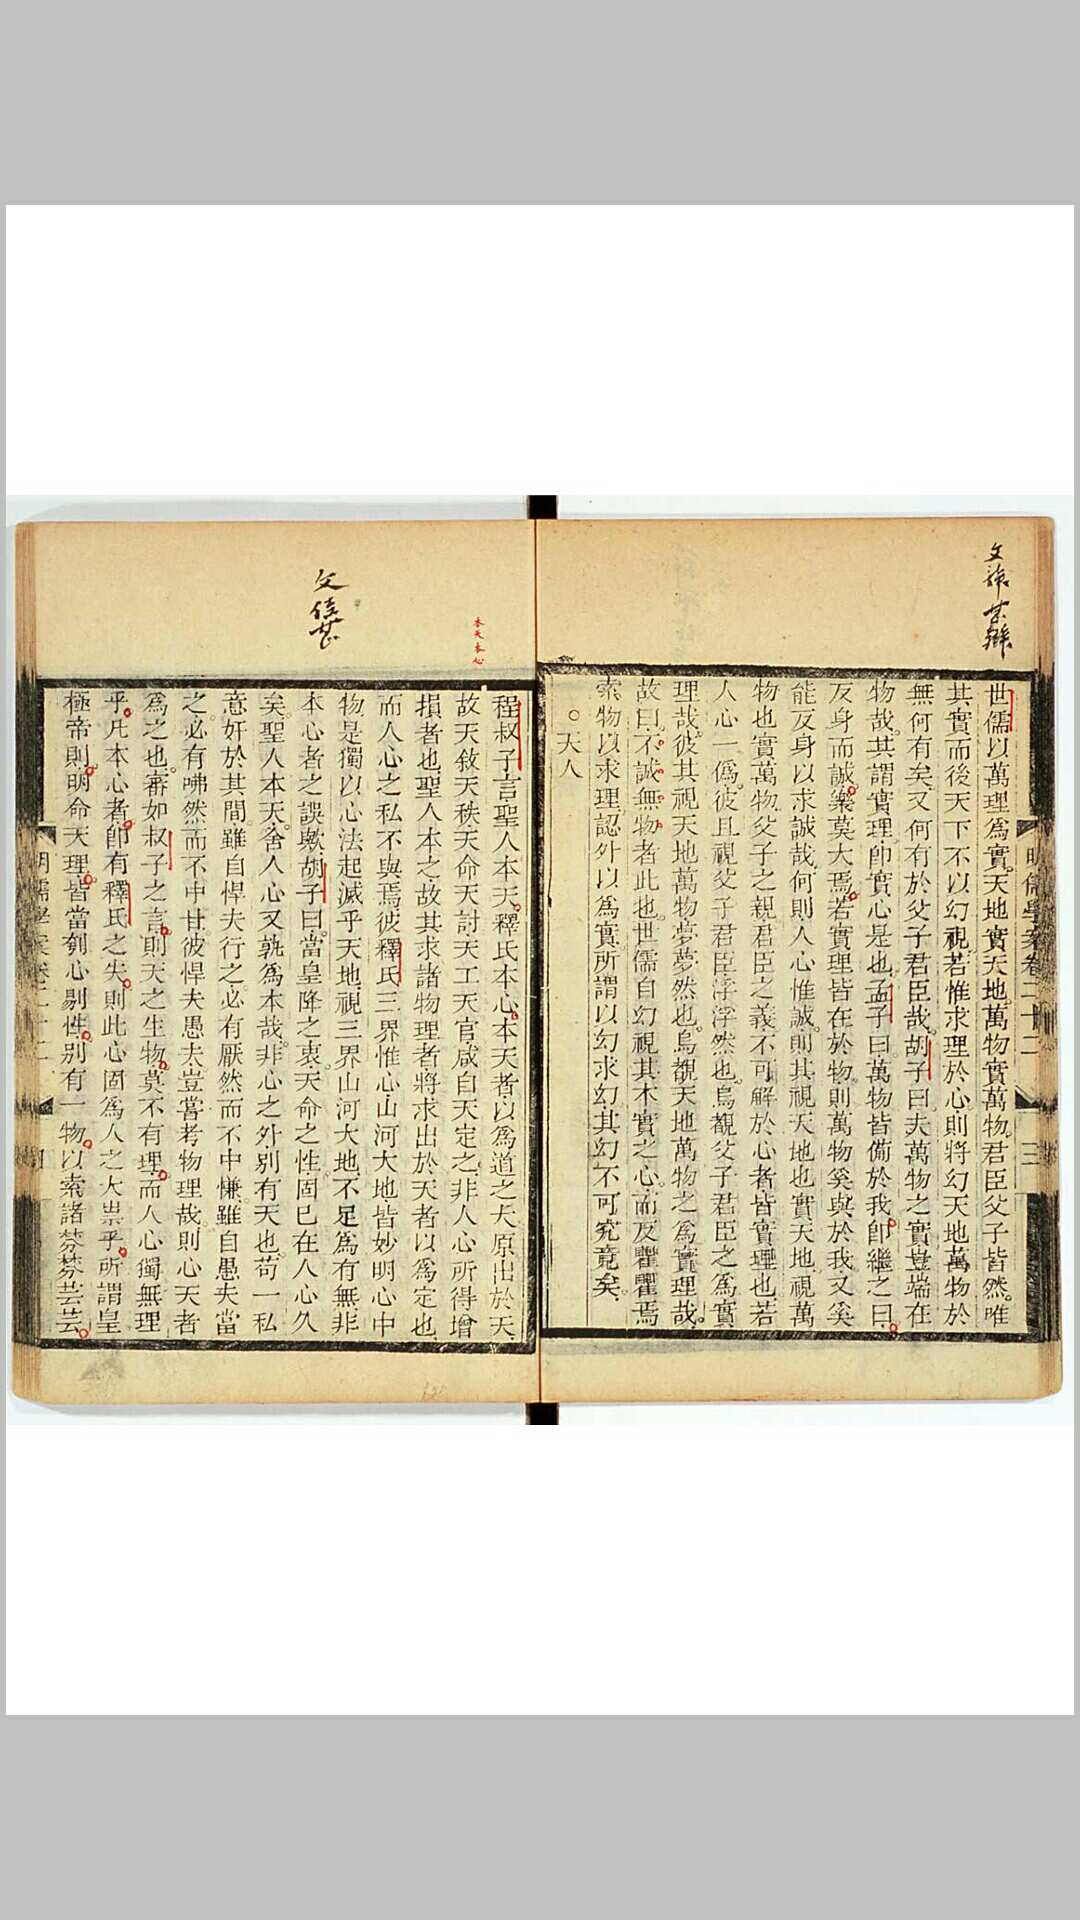 世儒以萬理爲實天地實天地萬物實萬物君臣父子皆然唯
其實而後天下不以幻視若惟求理於心則將幻天地萬物於
無何有矣又何有於父子君臣哉胡子曰夫萬物之實豈端在
物哉其謂實理卽實心是也孟子曰萬物皆備於我卽繼之曰
反身而誠樂莫大焉若實理皆在於物則萬物奚與於我又奚
能反身以求誠哉何則人心惟誠則其視天地也實天地視萬
物也實萬物父子之親君臣之義不可解於心者皆實理也若
人心一僞彼且視父子君臣浮浮然也烏覩父子君臣之爲實
理哉彼其視天地萬物夢夢然也烏覩天地萬物之爲實理哉
故曰不誠無物者此也世儒自幻視其本實之心而反瞿瞿焉
索物以求理認外以爲實所謂以幻求幻其幻不可究竟矣
○天人
明儒學案卷二十二
三
程叔子言聖人本天釋氏本心本天者以爲道之大原出於天
故天敘天秩天命天討天工天官咸自天定之非人心所得增
損者也聖人本之故其求諸物理者將求出於天者以爲定也
而人心之私不與焉彼釋氏三界惟心山河大地皆妙明心中
物是獨以心法起滅乎天地視三界山河大地不足爲有無非
本心者之誤歟胡子曰當皇降之衷天命之性固已在人心久
矣聖人本天舍人心又孰爲本哉非心之外別有天也苟一私
意奸於其間雖自悍夫行之必有厭然而不中慊雖自愚夫當
之必有咈然而不中甘彼悍夫愚夫豈嘗考物理哉則心天者
爲之也審如叔子之言則天之生物莫不有理而人心獨無理
乎凡本心者卽有釋氏之失則此心固爲人之大祟乎所謂皇
極帝則明命天理皆當刳心剔性別有一物以索諸棼棼芸芸
明儒學案卷二十二
四
本天本心